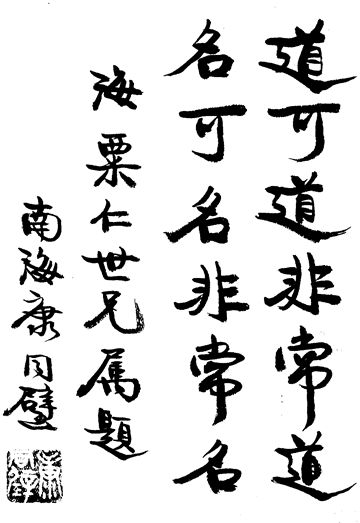 道可道非常道
名可名非常名
海粟仁世兄属題
南海康同璧